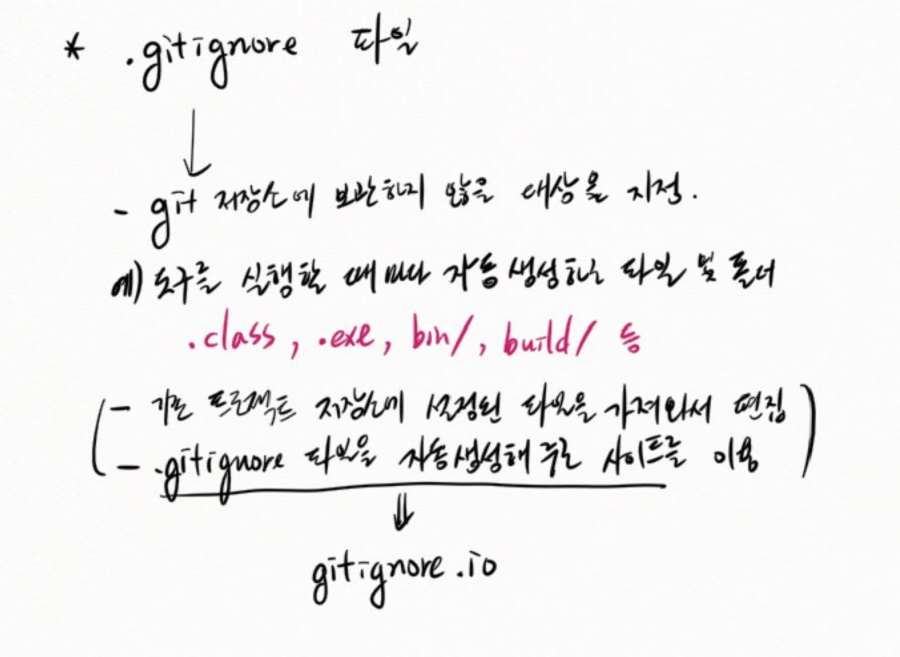 * .gitignore 파일
- git 저장소에 보관하지 않을 대상을 지정.
예) 도구를 실행할 때 마다 자동생성하는 파일 및 폴더
.class, .exe, bin/, build/ 등
- 기존 프로젝트 저장소에 설정된 파일을 가져와서 편집
- .gitignore 파일을 자동생성해주는 사이트를 이용
gitignore.io